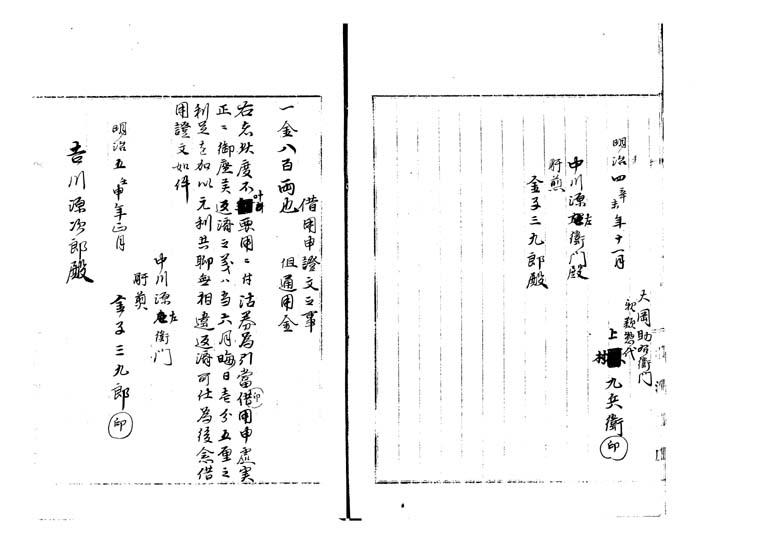 明治四辛未年十一月
中川源左衛門殿
肝煎
金子三九郎殿
大岡助右衛門
親類惣代
上村九兵衛 印
借用申證文之事
一金八百両也 但通用金
右者此度不叶要用ニ付沽券為引當借用申處実
正ニ御座候返済之義ハ當六月晦日壱分五厘之
利足を加以元利共聊無相違返済可仕為後念借
用證文如件
明治五壬申年正月
中川源左衛門
肝煎
金子三九郎 印
吾川源次郎殿